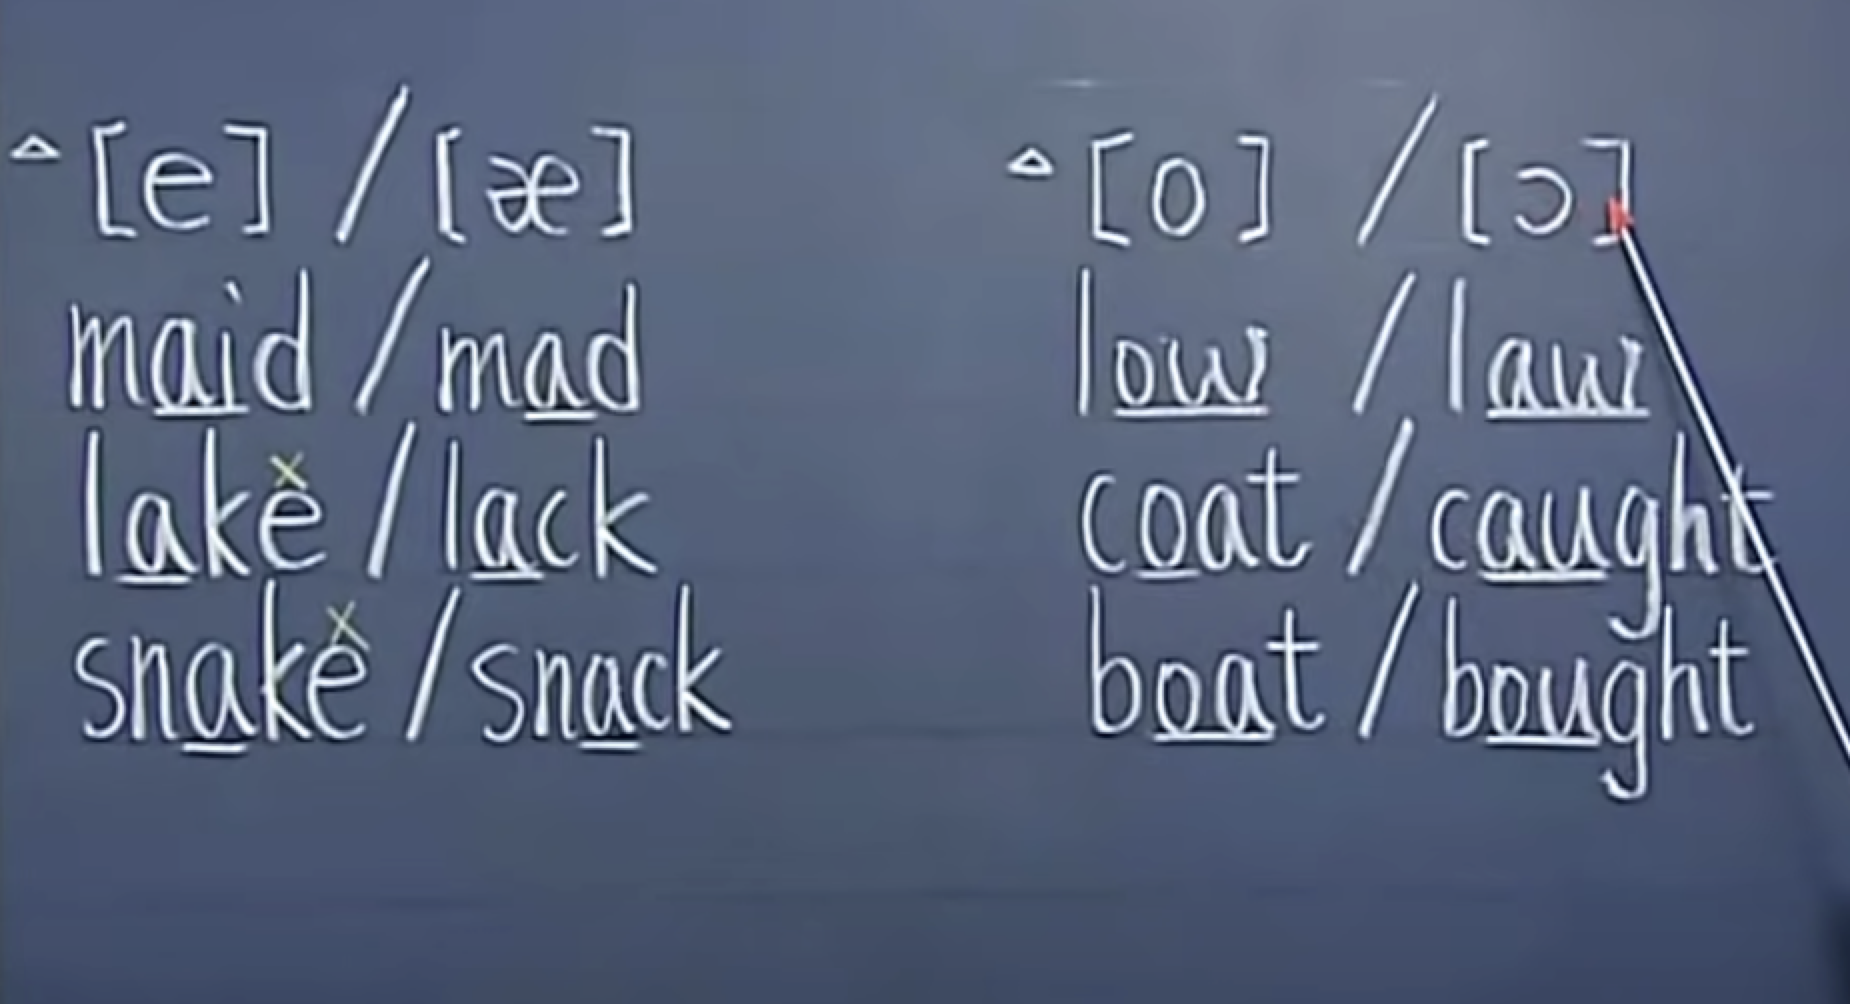 △[e] / [æ]
maid / mad
lake / lack
snake / snack
△[o] / [ɔ]
low / law
coat / caught
boat / bought